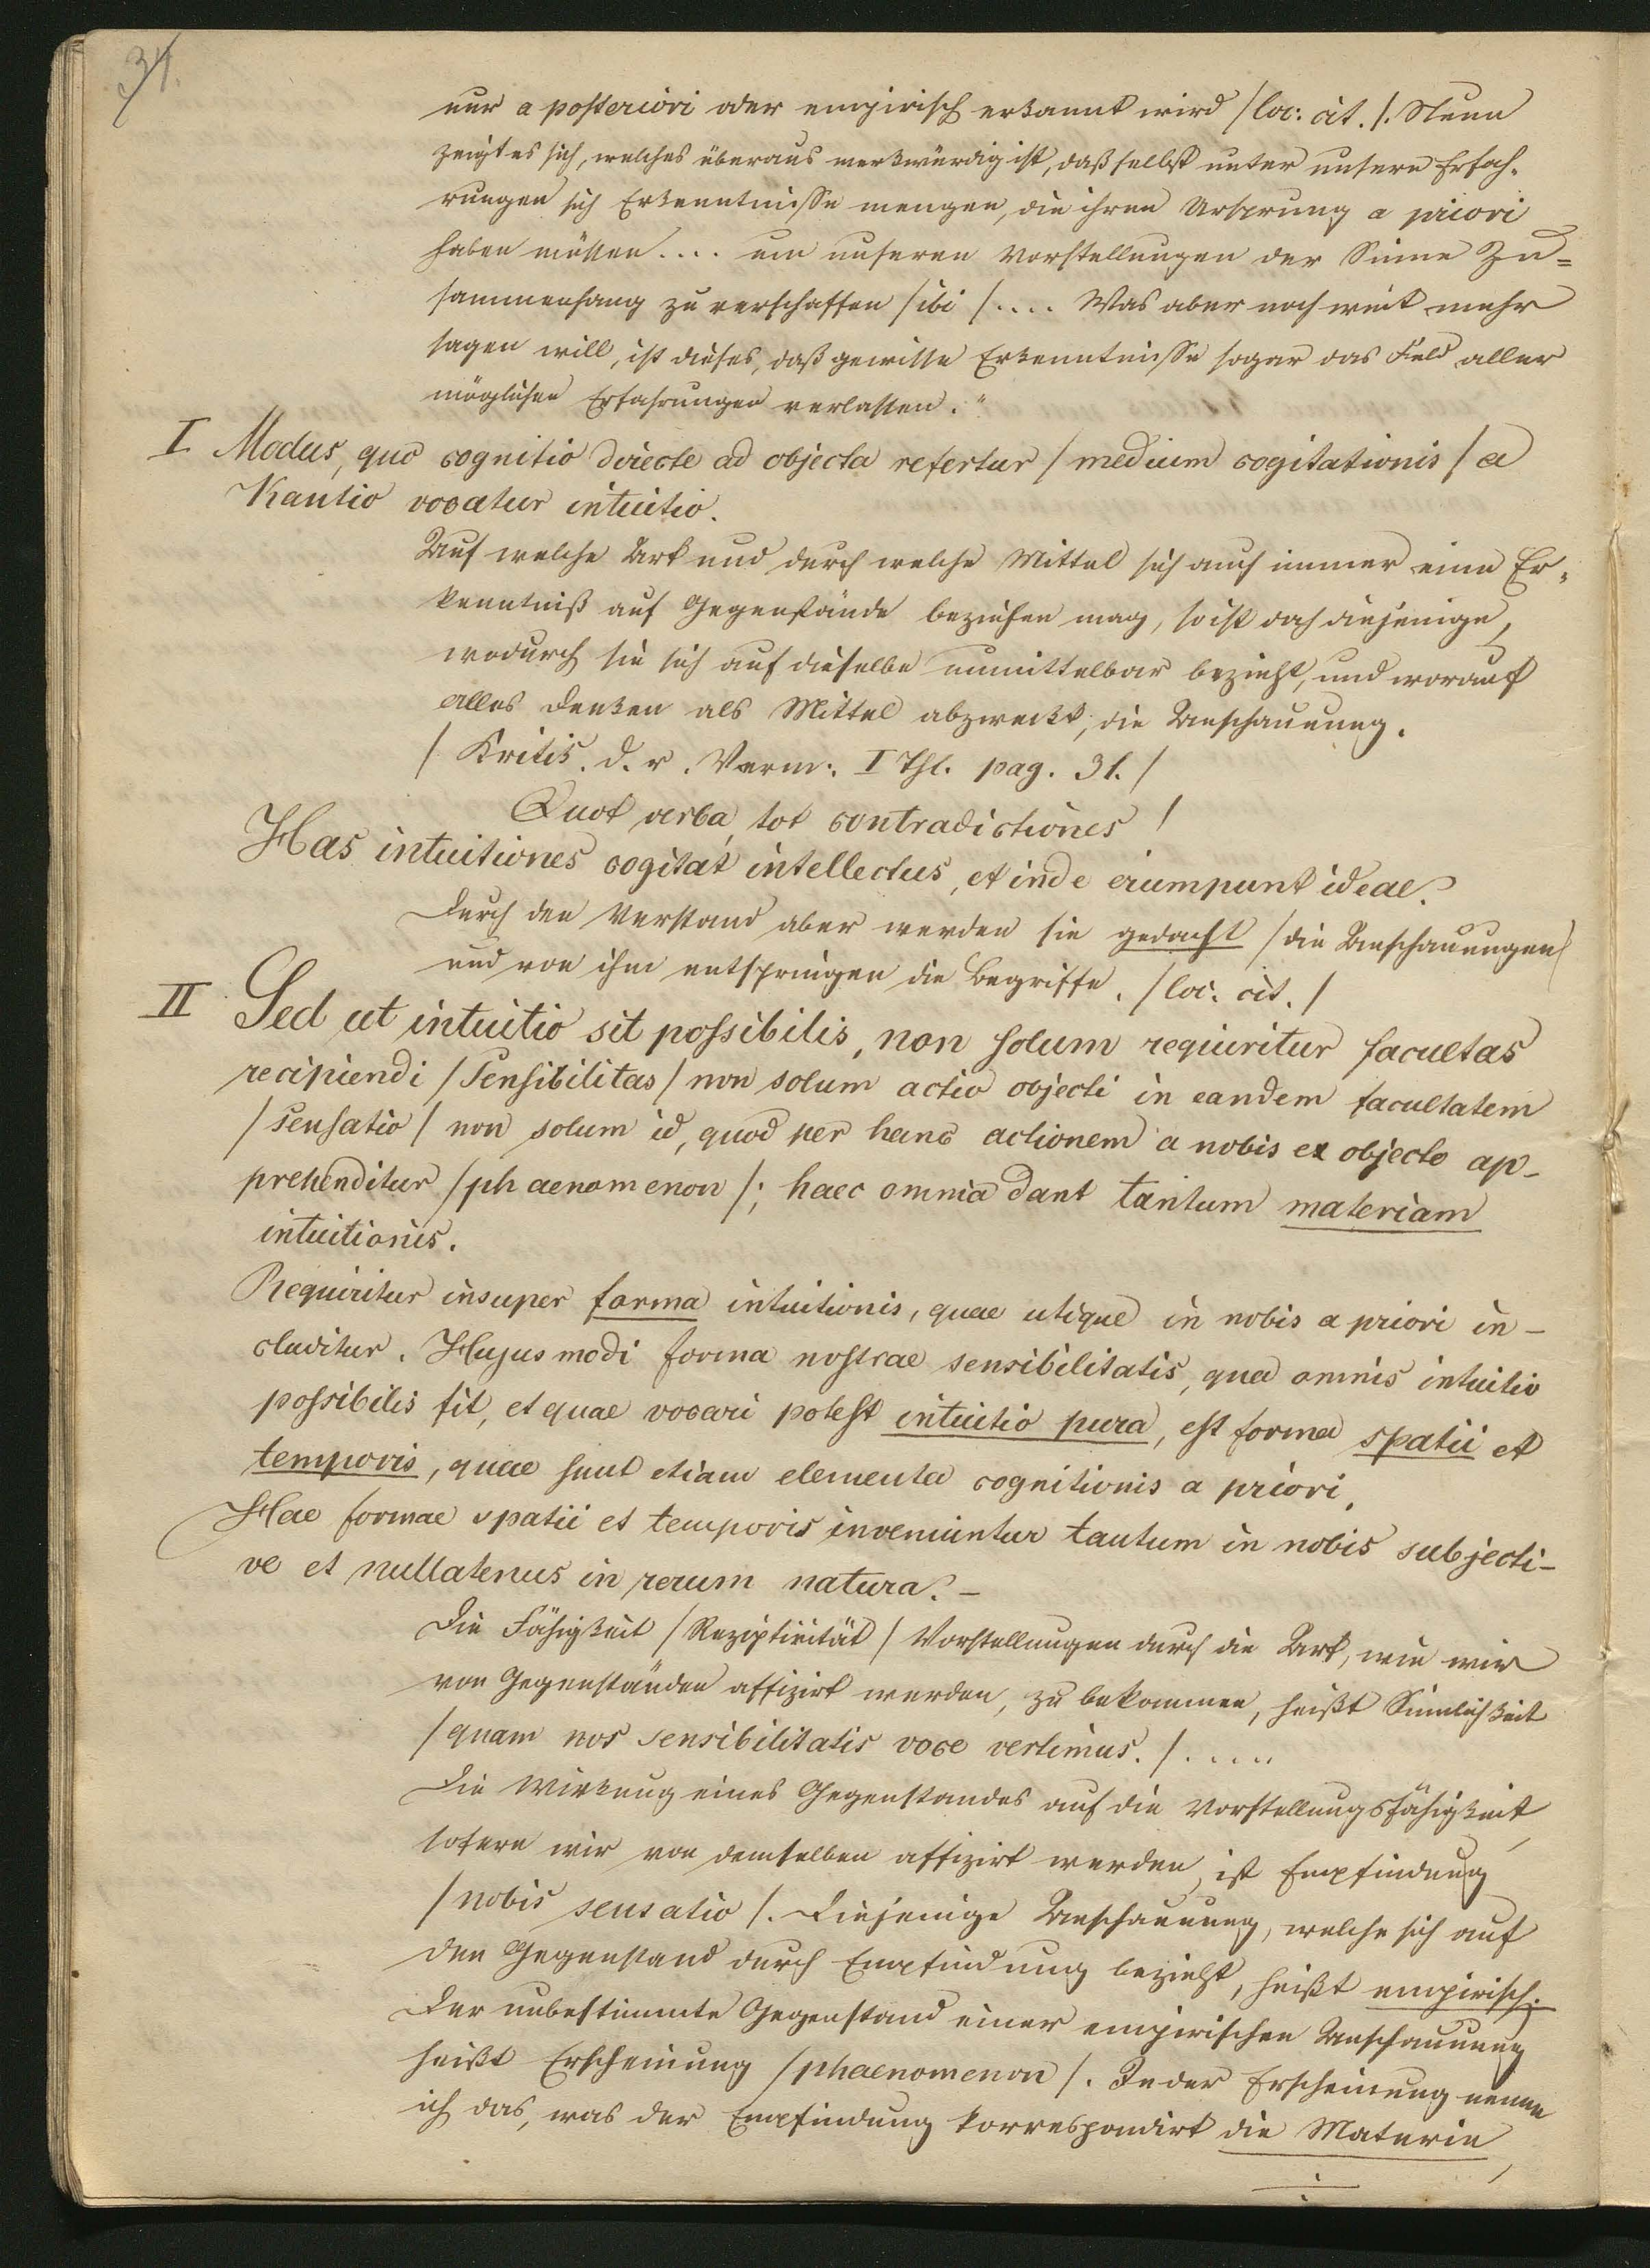 31.
nur a posteriori oder empirisch erkannt wird /loc: cit./. Nun
zeigt es sich, welches überaus merkwürdig ist, daß selbst unter unsere Erfah-
rungen sich Erkenntnisse mengen, die ihren Ursprung a priori
haben müssen.... um unseren Vorstellungen der Sinne Zu=
sammenhang zu verschaffen /ibi/.... Was aber noch weit mehr
sagen will, ist dieses, daß gewisse Erkenntnisse sogar das Feld aller
möglichen Erfahrungen verlassen."
I Modus, quo cognitio directe ad objecta refertur /medium cogitationis/ a
Kantio vocatur intuitio.
Auf welche Art und durch welche Mittel sich auch immer eine Er-
kenntniß auf Gegenstände beziehen mag, so ist doch diejenige,
wodurch sie sich auf dieselbe unmittelbar bezieht, und worauf
alles Denken als Mittel abzweckt, die Anschauung.
/Kritik. d. r. Vernn: I Thl. pag. 31./
Quot verba, tot contradictiones!
Has intuitiones cogitat intellectus, et inde erumpunt ideae.
Durch den Verstand aber werden sie gedacht /die Anschauungen/
und von ihm entspringen die Begriffe. /loc. cit./
II Sed ut intuitio sit possibilis, non solum requiritur facultas
recipiendi /Sensibilitas/ non solum actio objecti in eandem facultatem
/sensatio/ non solum id, quod per hanc actionem a nobis ex objecto ap-
prehenditur /phaenomenon/; haec omnia dant tantum materiam
intuitionis.
Requiritur insuper forma intuitionis, quae utique in nobis a priori in-
cluditur. Hujusmodi forma nostrae sensibilitatis, qua omnis intuitio
possibilis fit, et quae vocari potest intuitio pura, est forma spatii et
temporis, quae sunt etiam elementa cognitionis a priori.
Hae formae spatii et temporis inveniuntur tantum in nobis subjecti-
ve et nullatenus in rerum natura. -
Die Fähigkeit /Rezeptivität/ Vorstellungen durch die Art, wie wir
von Gegenständen affizirt werden, zu bekommen, heißt Sinnlichkeit
/quam nos sensibilitatis voce vertimus./.....
Die Wirkung eines Gegenstandes auf die Vorstellungsfähigkeit,
sofern wir von demselben affizirt werden, ist Empfindung
/nobis sensatio/. Diejenige Anschauung, welche sich auf
den Gegenstand durch Empfindung bezieht, heißt empirisch.
Der unbestimmte Gegenstand einer empirischen Anschauung
heißt Erscheinung /phaenomenon/. In der Erscheinung nenne
ich das, was der Empfindung korrespondirt die Materie,